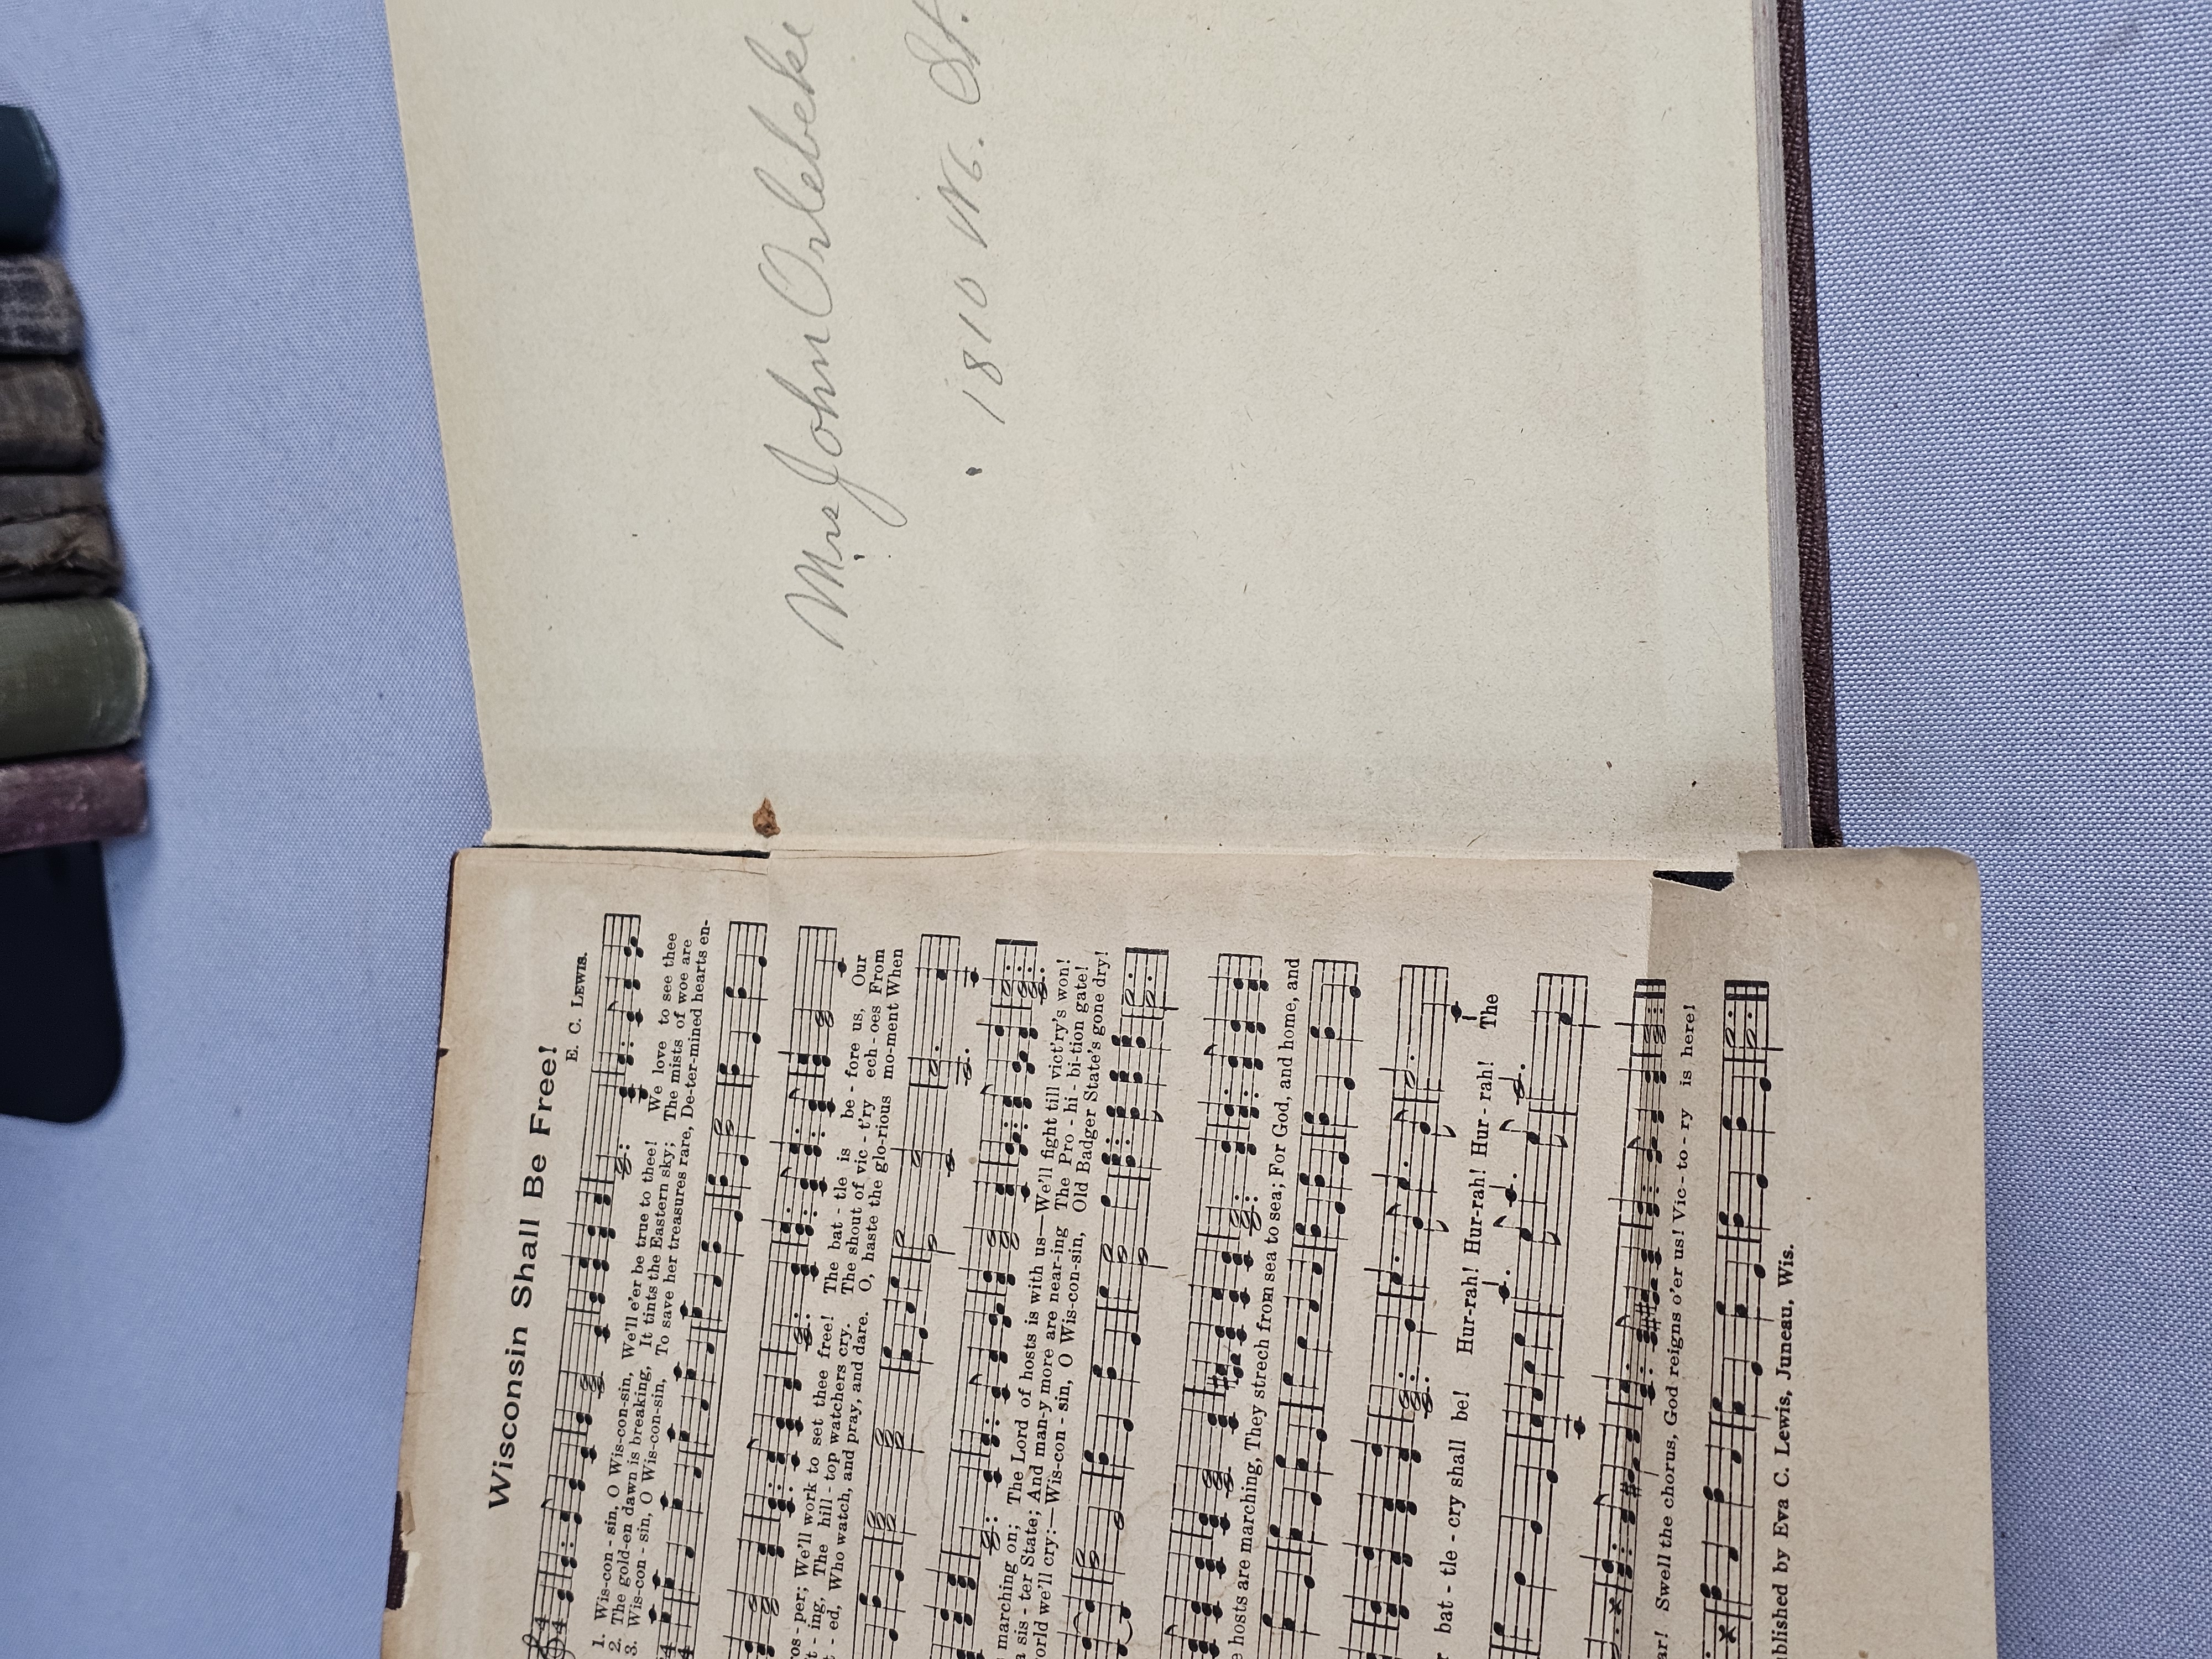 Wisconsin Shall Be Free!
E. C. LEWIS.
1. Wis-con - sin, O Wis-con-sin, We'll e'er be true to thee! We love to see thee
2. The gold-en dawn is breaking, It tints the Eastern sky; The mists of woe are
3. Wis-con - sin, O Wis-con-sin, To save her treasures rare, De-ter-mined hearts en-
We'll work to set thee free! The bat - tle is be - fore us, Our
The hill - top watchers cry. The shout of vic - t'ry ech - oes From
Who watch, and pray, and dare. O, haste the glo-rious mo-ment When
marching on; The Lord of hosts is with us—We'll fight till vict'ry's won!
sis - ter State; And man-y more are near-ing The Pro - hi - bi-tion gate!
we'll cry:—Wis-con - sin, O Wis-con-sin, Old Badger State's gone dry!
hosts are marching, They strech from sea to sea; For God, and home, and
bat - tle - cry shall be! Hur-rah! Hur-rah! Hur - rah! The
Swell the chorus, God reigns o'er us! Vic-to-ry is here!
by Eva C. Lewis, Juneau, Wis.
Mrs John Orlebeke
1810 N. St.